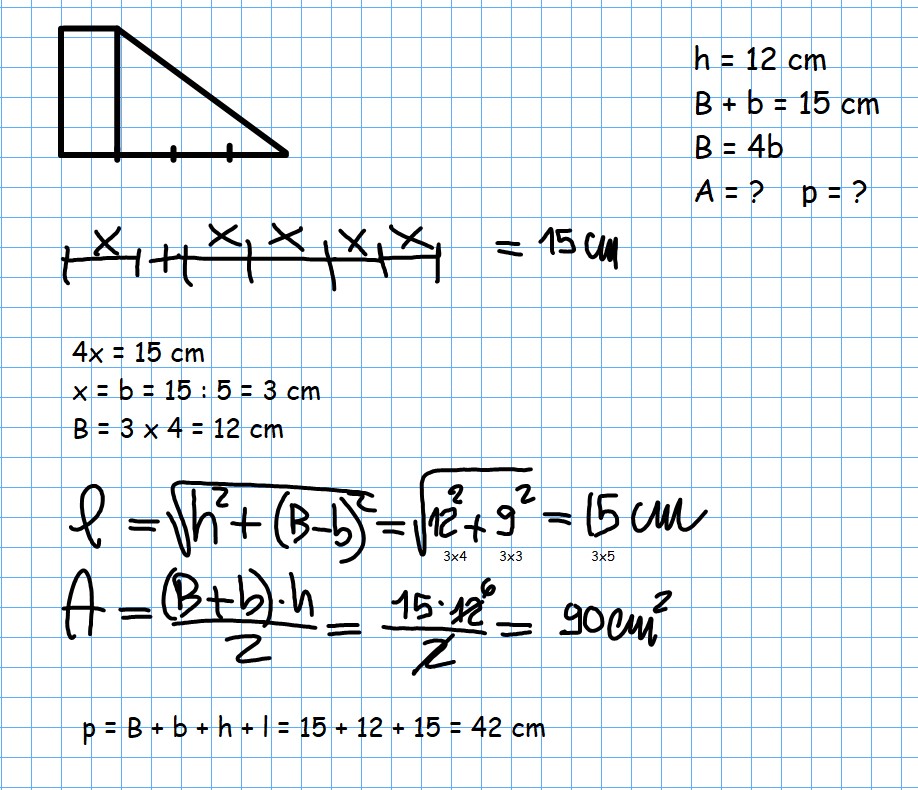 h = 12 cm
B + b = 15 cm
B = 4b
A = ? p = ?
x + x x x x = 15 cm
4x = 15 cm
x = b = 15 : 5 = 3 cm
B = 3 x 4 = 12 cm
l = √h² + (B-b)² = √12² + 9² = 15 cm
3x4 3x3 3x5
A = (B+b)·h / 2 = 15·12 6 / 2 = 90 cm²
p = B + b + h + l = 15 + 12 + 15 = 42 cm